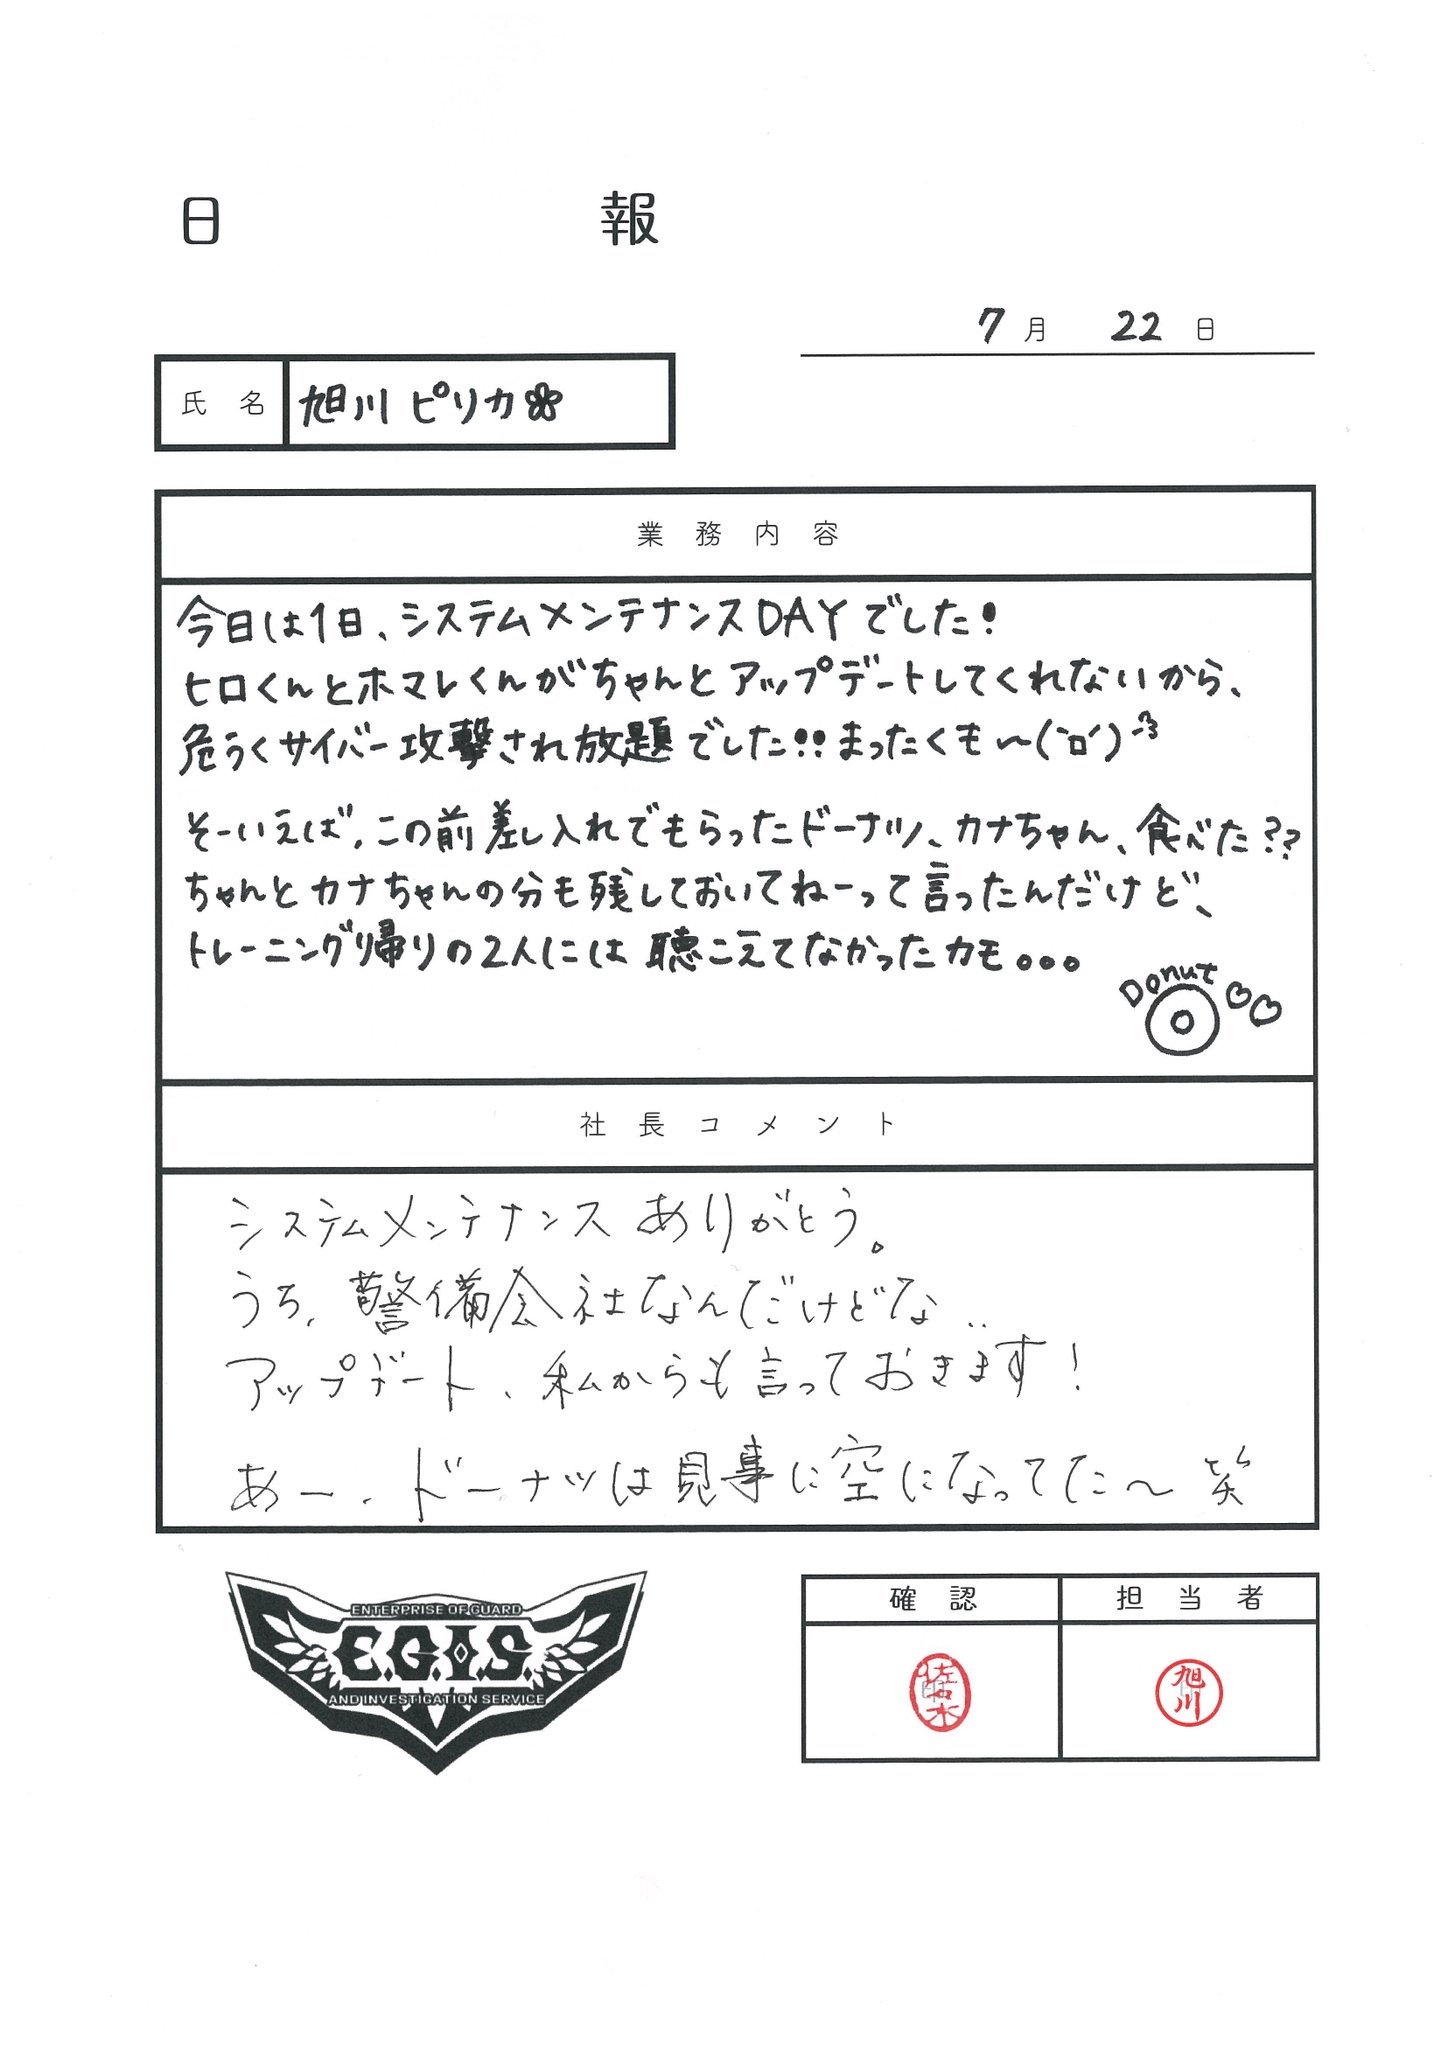 日報
7月 22日
氏名 旭川ピリカ
業務内容
今日は1日、システムメンテナンスDAYでした!
ヒロくんとホマレくんがちゃんとアップデートしてくれないから、
危うくサイバー攻撃され放題でした!!まったくも〜(`ロ´)
そーいえば、この前差し入れでもらったドーナツ、カナちゃん、食べた??
ちゃんとカナちゃんの分も残しておいてねーって言ったんだけど、
トレーニング帰りの2人には聴こえてなかったカモ。。。
Donut
社長コメント
システムメンテナンスありがとう。
うち、警備会社なんだけどな..
アップデート、私からも言っておきます!
あー、ドーナツは見事に空になってた〜笑
ENTERPRISE OF GUARD
E.G.I.S.
AND INVESTIGATION SERVICE
確認 担当者
旭川